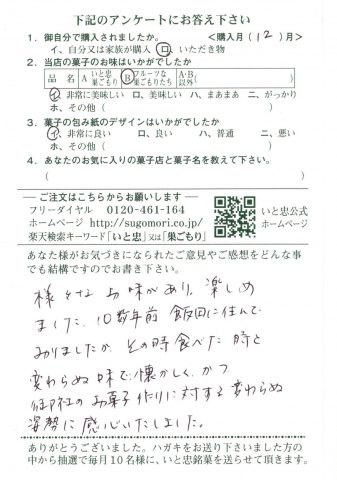 下記のアンケートにお答え下さい
1. 御自分で購入されましたか。 <購入月( 12 )月>
イ、自分又は家族が購入 ロ、いただき物
2. 当店の菓子のお味はいかがでしたか
品 名 A いと忠巣ごもり B フルーツな巣ごもりたち A・B以外( )
イ、非常に美味しい ロ、美味しい ハ、まあまあ ニ、がっかり
ホ、その他( )
3. 菓子の包み紙のデザインはいかがでしたか
イ、非常に良い ロ、良い ハ、普通 ニ、悪い
ホ、その他( )
4. あなたのお気に入りの菓子店と菓子名を教えて下さい。
( )
ご注文はこちらからお願いします
フリーダイヤル 0120-461-164
ホームページ http://sugomori.co.jp/
楽天検索キーワード「いと忠」又は「巣ごもり」
いと忠公式
ホームページ
あなた様がお気づきになられたご意見やご感想をどんな事
でも結構ですのでお書き下さい。
様々なお味があり、楽しめ
ました。10数年前 飯田に住んで
おりましたが、その時食べた時と
変わらぬ味で、懐かしく、かつ
御社のお菓子作りに対する変わらぬ
姿勢に感心いたしました。
ありがとうございました。ハガキをお送り下さいました方の
中から抽選で毎月10名様に、いと忠銘菓を送らせて頂きます。